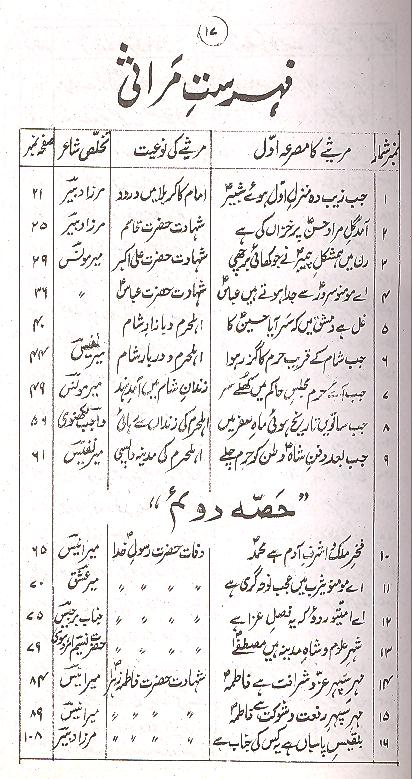 ۱۷
فہرستِ مراثی
نمبر شمار مرثیے کا مصرعہ اوّل مرثیے کی نوعیت تخلّصِ شاعر صفحہ نمبر
۱ جب زیب دہ منزلِ اوّل ہوئے شبیرؑ امام کا کربلا میں ورود مرزا دبیرؔ ۲۱
۲ آمد گلِ مرادِ حسنؑ پر خزاں کی ہے شہادت حضرت قاسم مرزا دبیرؔ ۲۵
۳ رن میں ہمشکلِ پیمبرؐ نے جو کھائی برچھی شہادت حضرت علی اکبر میر مونسؔ ۲۹
۴ اے مومنو سرورؑ سے جدا ہوتے ہیں عباسؑ شہادت حضرت عباسؑ 〃 ۳۶
۵ غل ہے دمشق میں کہ سر آیا حسینؑ کا اہلحرم و بازارِ شام ۴۰
۶ جب شام کے قریب حرم کا گزر ہوا اہلحرم و دربارِ شام میر نفیسؔ ۴۴
۷ جب آئے حرم مجلسِ حاکم میں کھلے سر زندانِ شام میں آمدِ ہند میر مونسؔ ۴۹
۸ جب ساتویں تاریخ ہوئی ماہِ صفر میں اہلحرم کی زنداں سے رہائی واجب لکھنوی ۵۶
۹ جب بعد دفنِ شاہؑ وطن کو حرم چلے اہلحرم کی مدینہ واپسی میر نفیسؔ ۶۱
”حصّہ دوئم“
۱۰ فخرِ ملک و اشرفِ آدم ہے محمدؐ وفات حضرت رسولِؐ خدا میر انیسؔ ۶۵
۱۱ اے مومنو یثرب میں عجب نوحہ گری ہے 〃 〃 〃 میر عشقؔ ۷۰
۱۲ اے امتیو روؤ کہ یہ فصلِ عزا ہے 〃 〃 〃 جناب برجیسؔ ۷۵
۱۳ شہرِ علوم و شاہِ مدینہ ہیں مصطفیٰؐ 〃 〃 〃 حضرت نسیمؔ امروہوی ۷۹
۱۴ مہرِ سپہرِ عزّ و شرافت ہے فاطمہؑ شہادت حضرت فاطمہ زہراؑ میر انیسؔ ۸۴
۱۵ مہرِ سپہرِ رفعت و شوکت ہے فاطمہؑ 〃 〃 〃 میر انیسؔ ۸۹
۱۶ بلقیس پاسباں ہے یہ کس کی جناب ہے 〃 〃 〃 مرزا دبیرؔ ۱۰۸